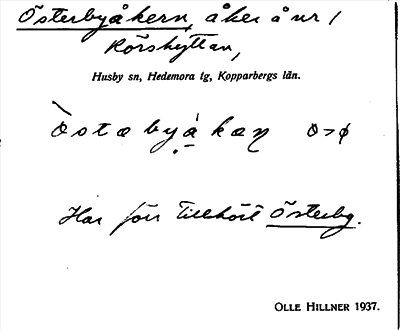 Österbyåkern, åker å nr 1
Rörshyttan,
Husby sn, Hedemora tg, Kopparbergs län.
Har förr tillhört Österby.
OLLE HILLNER 1937.